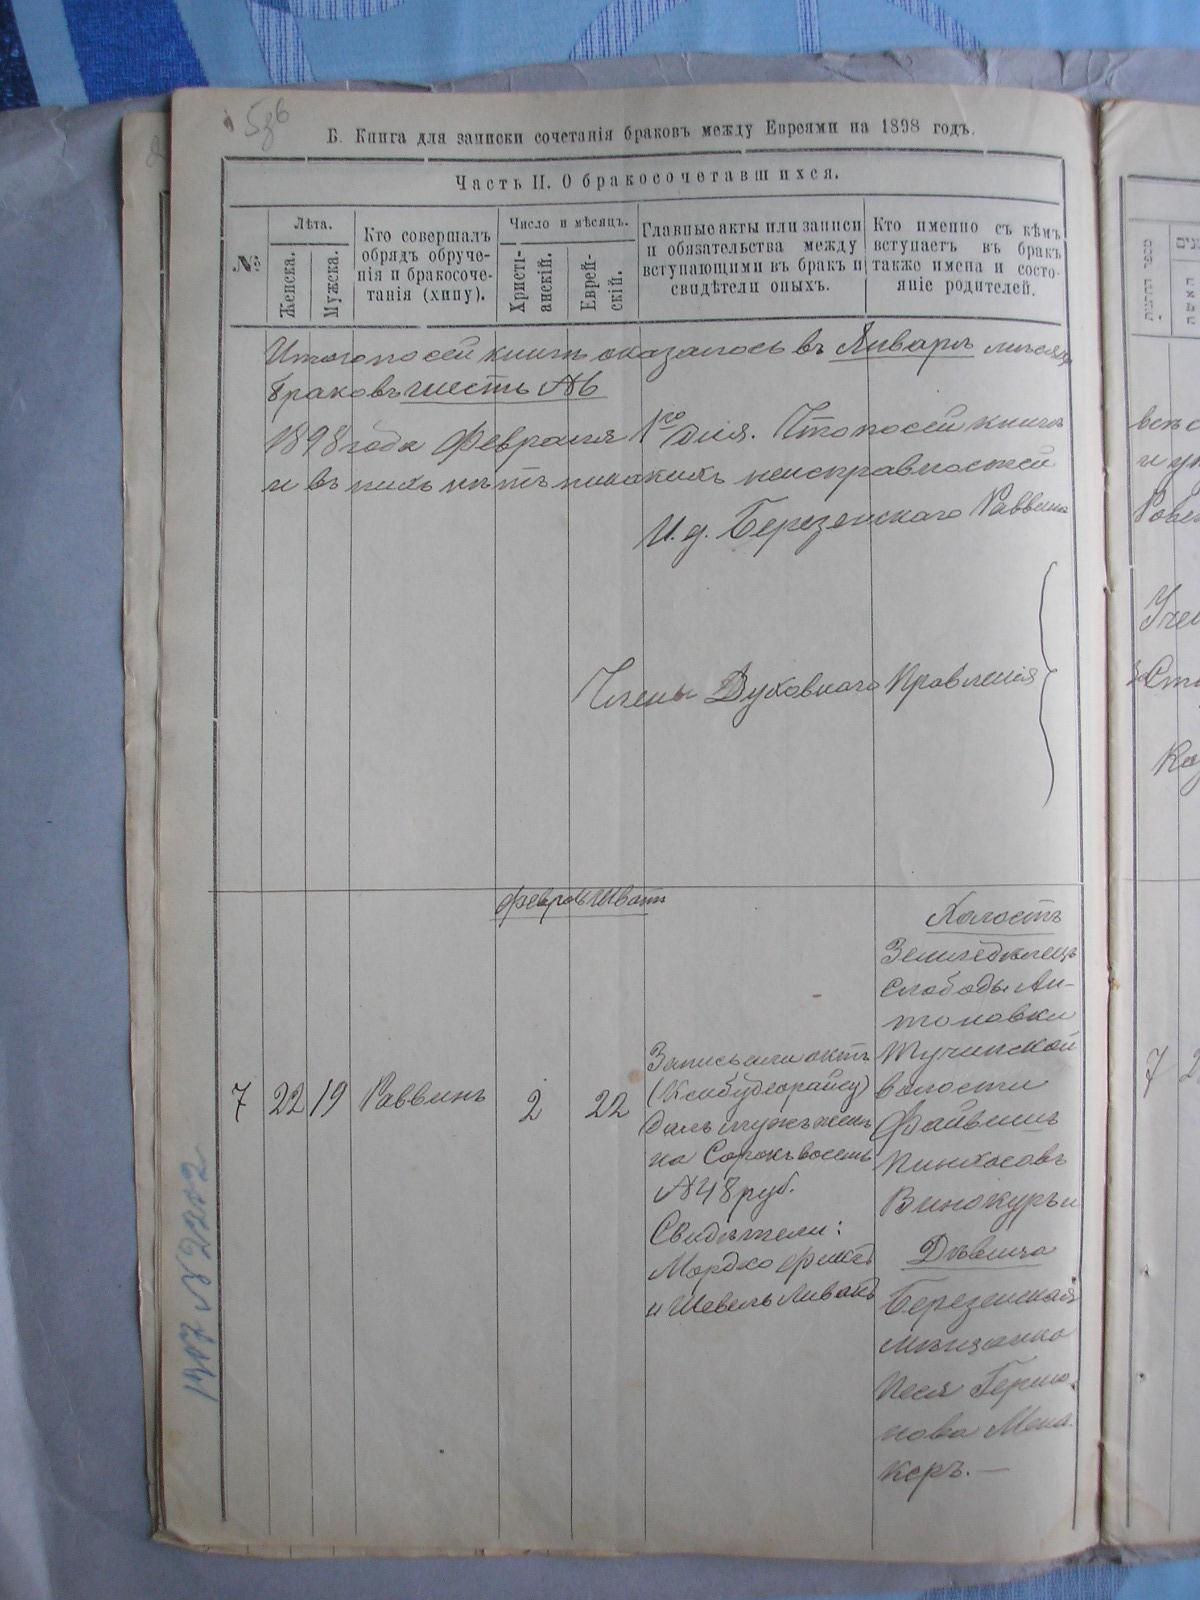 Б. Книга для записки сочетанія браковъ между Евреями на 1898 годъ.
Часть II. О бракосочетавшихся.
№
Лѣта.
Женска.
Мужска.
Кто совершалъ
обрядъ обруче-
нія и бракосоче-
танія (хипу).
Число и мѣсяцъ.
Христі-
анскій.
Еврей-
скій.
Главные акты или записи
и обязательства между
вступающими въ бракъ и
свидѣтели оныхъ.
Кто именно съ кѣмъ
вступаетъ въ бракъ
также имена и состо-
яніе родителей.
Итого по сей книгѣ оказалось въ Январѣ мѣсяцѣ
браковъ шесть №6
1898 года Февраля 1го дня. Что по сей книгѣ
и въ нихъ нѣтъ никакихъ неисправностей
И. д. Березенскаго Раввина
Члены Духовнаго Правленія
Февраль Шватъ
7
22
19
Раввинъ
2
22
Запись или актъ
далъ мужъ женѣ
на Сорокъ восемь
№48 руб.
Свидѣтели:
Мордко
и Шевель Ливакъ
Холостъ
Земледѣлецъ
слободы Ан-
тоновки
Тучинской
волости
Файвишъ
Пинхасовъ
Винокуръ и
Дѣвица
Березенская
мѣщанка
Песя Гершо-
нова Мена-
керъ. —
1907 № 2202
7